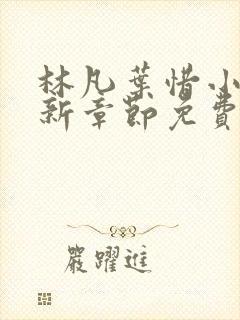 林凡葉惜小
新章節免費
嚴躍進